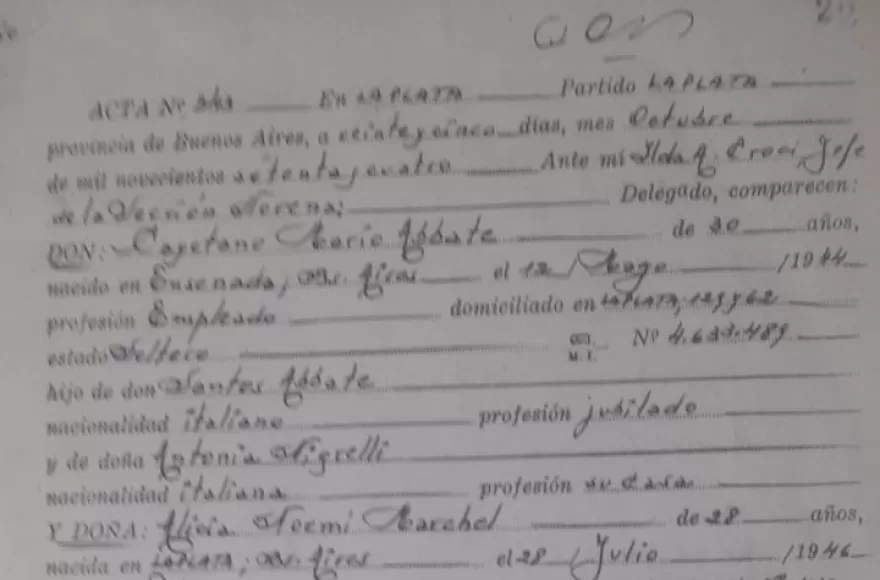 ACTA Nº En LA PLATA Partido LA PLATA
provincia de Buenos Aires, a veinte y cinco días, mes Octubre
de mil novecientos setenta y cuatro Ante mi Ilda A. Croci Jefe
de la Sección Novena; Delegado, comparecen:
DON: Cayetano Mario Abbate de 30 años,
nacido en Ensenada, Bs. Aires el 12 / Mayo /1944
profesión Empleado domiciliado en LA PLATA, 123 y 62
estado Soltero M. I. Nº
hijo de don Santos Abbate
nacionalidad italiano profesión jubilado
y de doña Antonia Nigrelli
nacionalidad italiana profesión su casa
Y DOÑA: Alicia Noemi Marchel de 28 años,
nacida en LA PLATA; Bs. Aires el 28 / Julio /1946